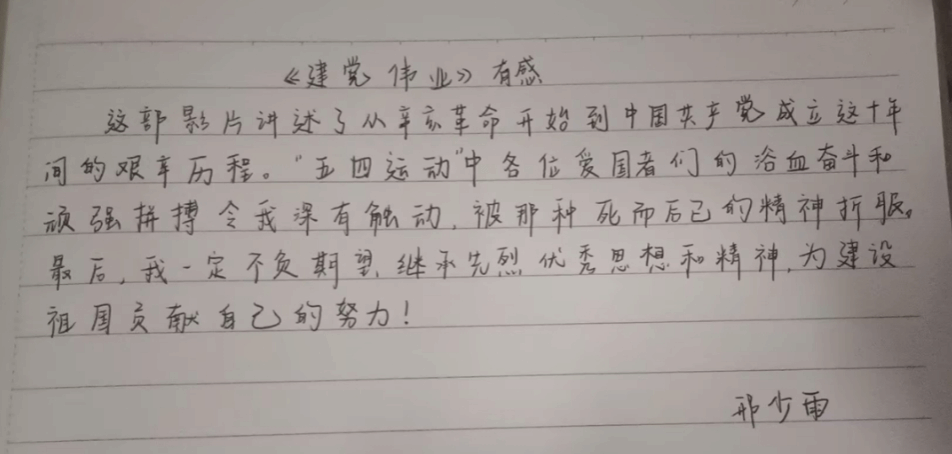 《建党伟业》有感
这部影片讲述了从辛亥革命开始到中国共产党成立这十年
间的艰辛历程。“五四运动”中各位爱国者们的浴血奋斗和
顽强拼搏令我深有触动，被那种死而后已的精神折服。
最后，我一定不负期望，继承先烈优秀思想和精神，为建设
祖国贡献自己的努力！
邢少雨